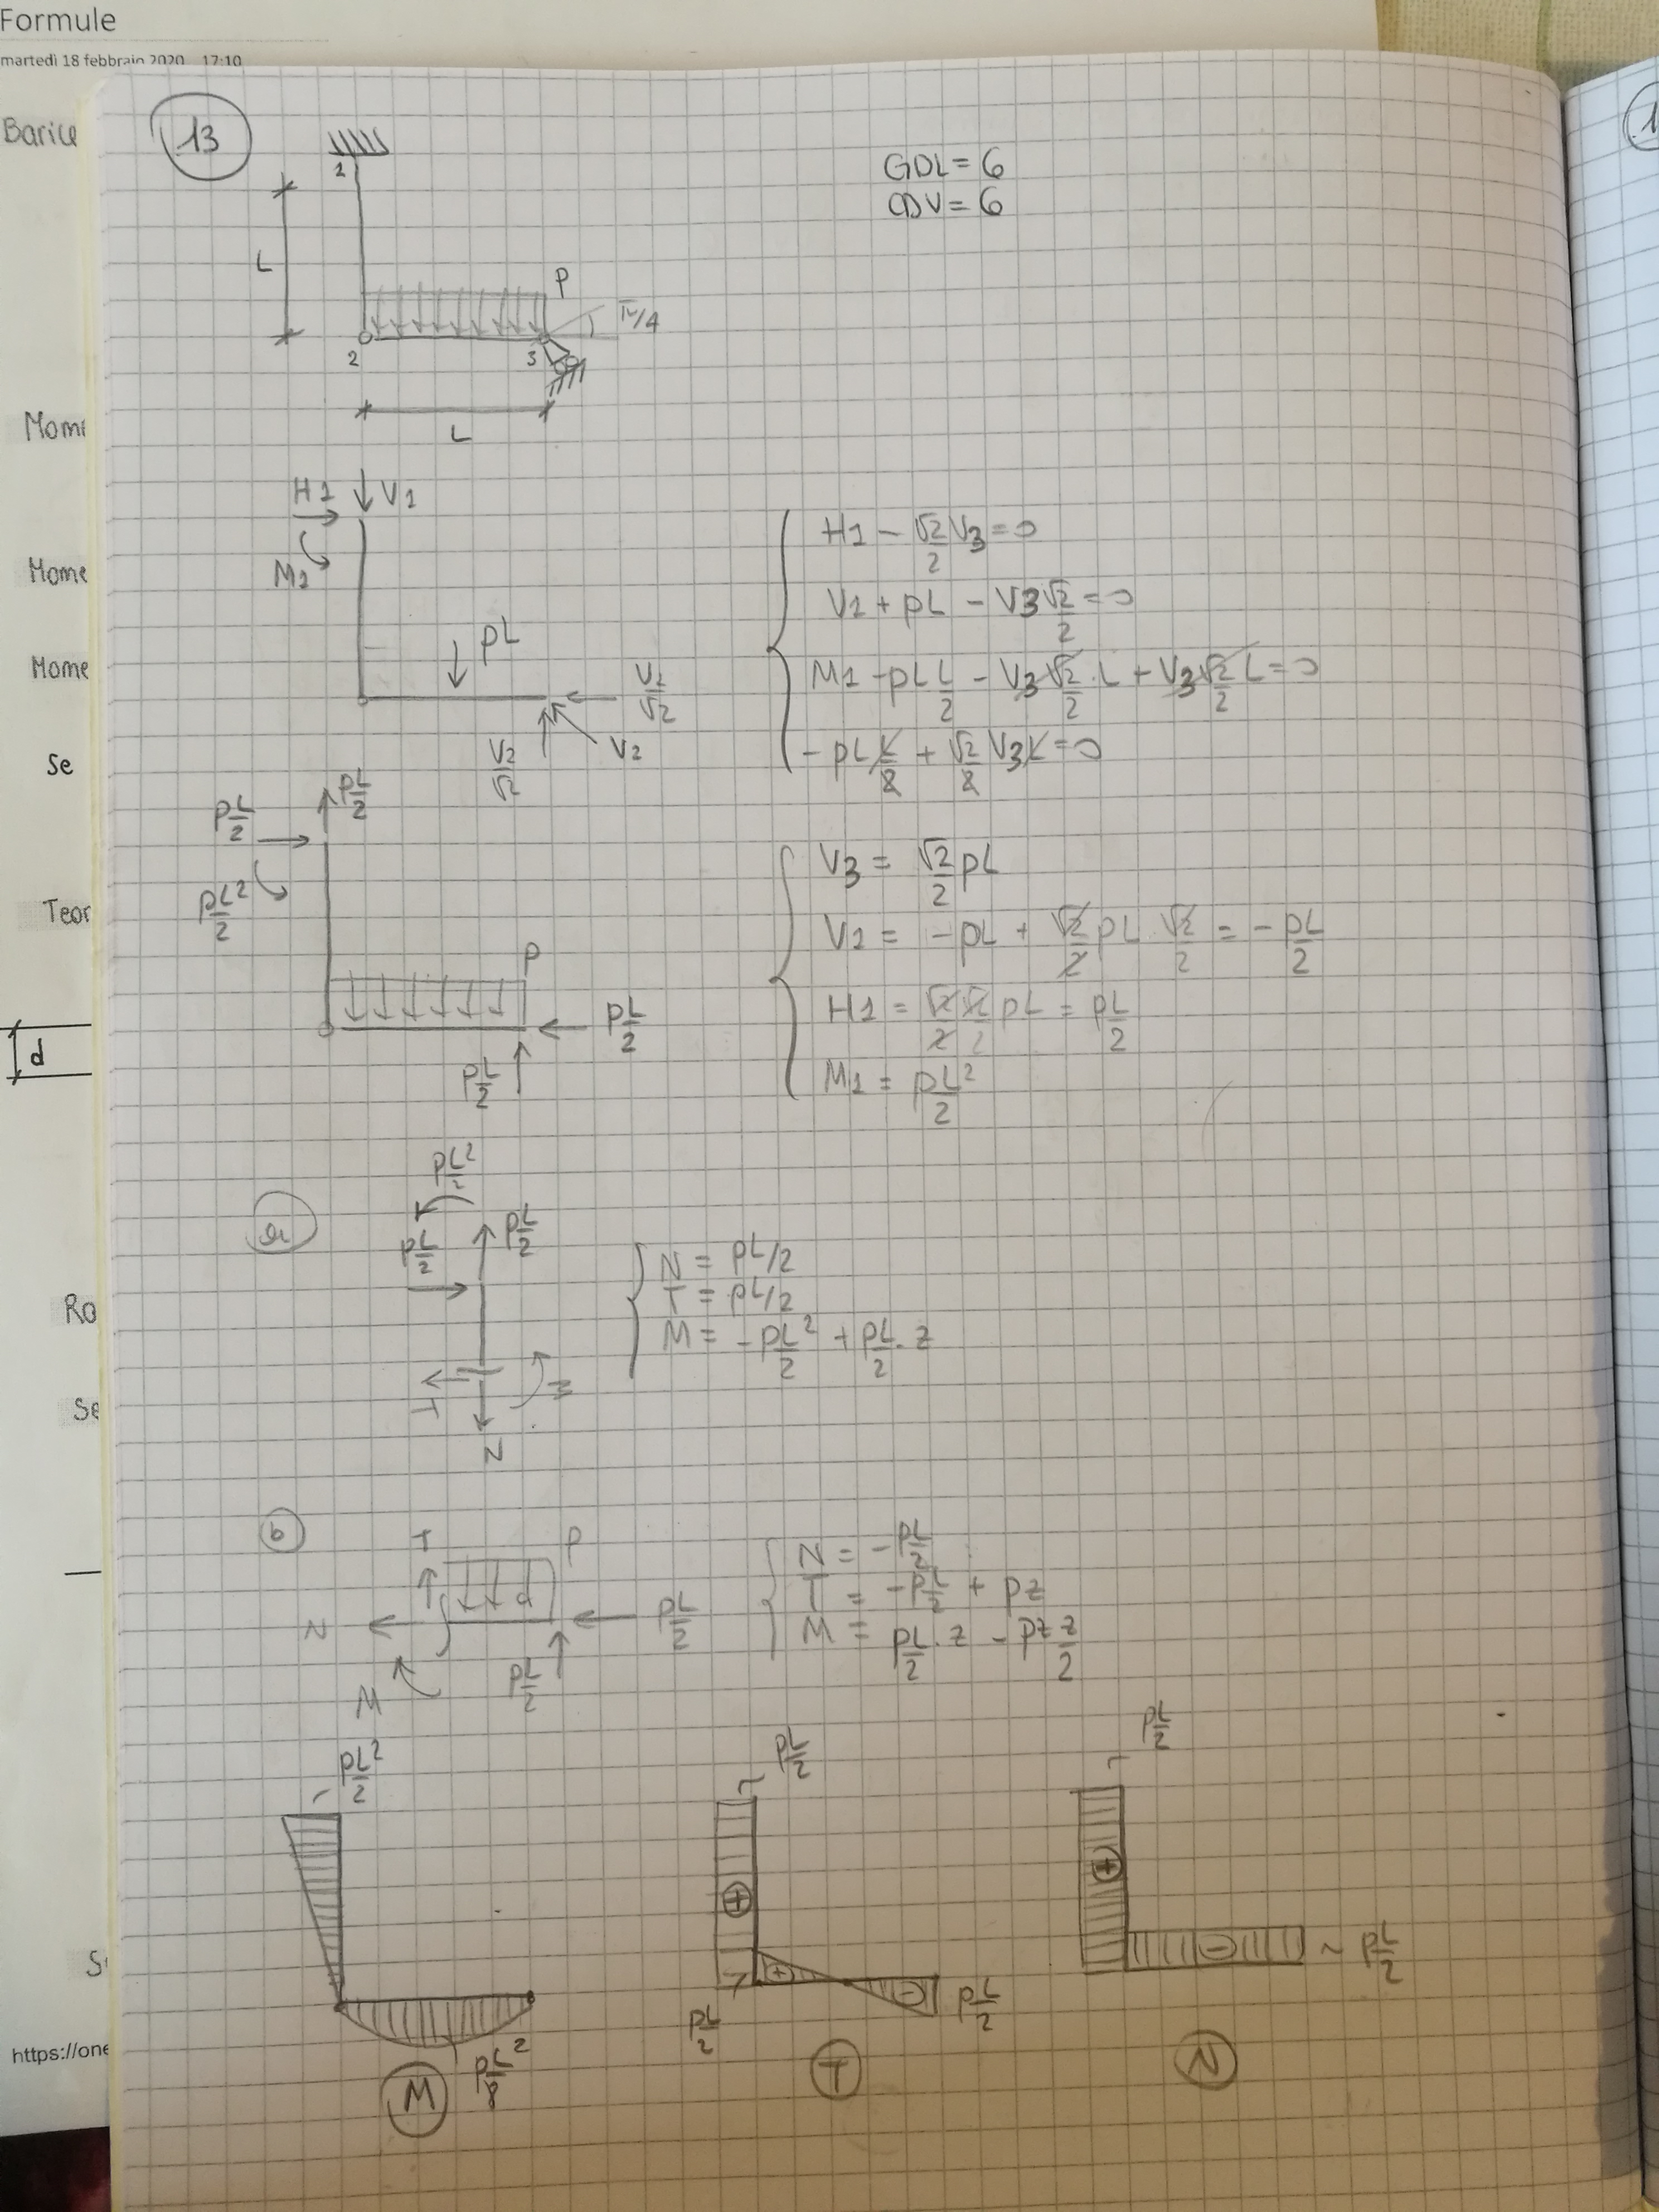 Formule
martedì 18 febbraio 2020 17:10
Baric
Mom
Mome
Mome
Se
Teor
d
Ro
Se
S
https://one
13
1
GDL = 6
CDV = 6
L
P
π/4
2
3
L
H1
V1
M1
pL
V2/√2
V2/√2
V2
H1 - √2/2 V3 = 0
V1 + pL - V3 √2/2 = 0
M1 - pL L/2 - V3 √2/2 · L + V3 √2/2 L = 0
- pL L/2 + √2/2 V3 L = 0
pL/2
pL/2
pL²/2
P
pL/2
pL/2
V3 = √2/2 pL
V1 = - pL + √2/2 pL · √2/2 = - pL/2
H1 = √2/2 √2/2 pL = pL/2
M1 = pL²/2
a
pL²/2
pL/2
pL/2
T
M
N
N = pL/2
T = pL/2
M = - pL²/2 + pL/2 · z
b
T
P
N
M
pL/2
pL/2
N = - pL/2
T = - pL/2 + pz
M = pL/2 · z - pz z/2
pL²/2
pL²/8
M
pL/2
+
+
-
pL/2
pL/2
T
pL/2
+
-
~ pL/2
N